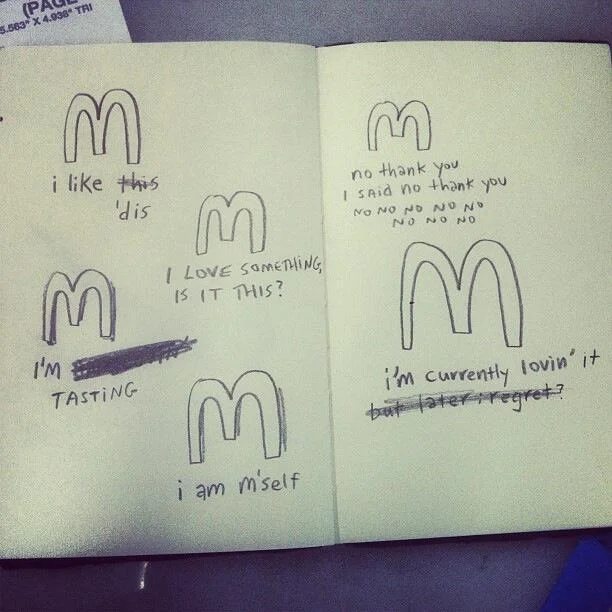 (PAGE
5.563" X 4.938" TRI
i like this
'dis
I LOVE SOMETHING,
IS IT THIS?
I'M
TASTING
i am m'self
no thank you
I SAID no thank you
NO NO NO NO NO
NO NO NO
i'm currently lovin' it
but later i regret?